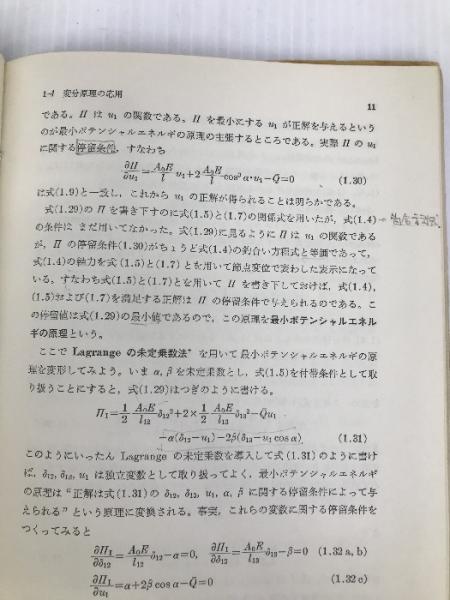 1-4 変分原理の応用
11
である。Π は u₁ の関数である。Π を最小にする u₁ が正解を与えるという
のが最小ポテンシャルエネルギの原理の主張するところである。実際 Π の u₁
に関する停留条件, すなわち
∂Π/∂u₁ = A₀E/l u₁+2 A₀E/l cos³ α·u₁−Q̄=0 (1.30)
は式(1.9)と一致し, これから u₁ の正解が得られることは明らかである。
式(1.29)の Π を書き下すのに式(1.5)と(1.7)の関係式を用いたが, 式(1.4)
の条件は まだ用いてなかった。式(1.29)に見るように Π は u₁ の関数である
が, Π の停留条件(1.30)がちょうど式(1.4)の釣合い方程式と等価であって,
式(1.4)の軸力を式(1.5)と(1.7)とを用いて節点変位で表わした表示になって
いる。すなわち式(1.5)と(1.7)とを用いて Π を書き下しておけば, 式(1.4),
(1.5)および(1.7)を満足する正解は Π の停留条件で与えられるのである。こ
の停留値は式(1.29)の最小値であるので, この原理を最小ポテンシャルエネル
ギの原理という。
ここで Lagrange の未定乗数法* を用いて最小ポテンシャルエネルギの原
理を変形してみよう。いま α, β を未定乗数とし, 式(1.5)を付帯条件として取
り扱うことにすると, 式(1.29)はつぎのように書ける。
Π₁ = 1/2 A₀E/l₁₂ δ₁₂²+2×1/2 A₀E/l₁₃ δ₁₃²−Q̄u₁
−α(δ₁₂−u₁)−2β(δ₁₃−u₁ cos α) (1.31)
このようにいったん Lagrange の未定乗数を導入して式(1.31)のように書け
ば, δ₁₂, δ₁₃, u₁ は独立変数として取り扱ってよく, 最小ポテンシャルエネルギ
の原理は “正解は式(1.31)の δ₁₂, δ₁₃, u₁, α, β に関する停留条件によって与
えられる” という原理に変換される。事実, これらの変数に関する停留条件を
つくってみると
∂Π₁/∂δ₁₂ = A₀E/l₁₂ δ₁₂−α=0, ∂Π₁/∂δ₁₃ = A₀E/l₁₃ δ₁₃−β=0 (1.32 a, b)
∂Π₁/∂u₁ =α+2β cos α−Q̄=0 (1.32 c)